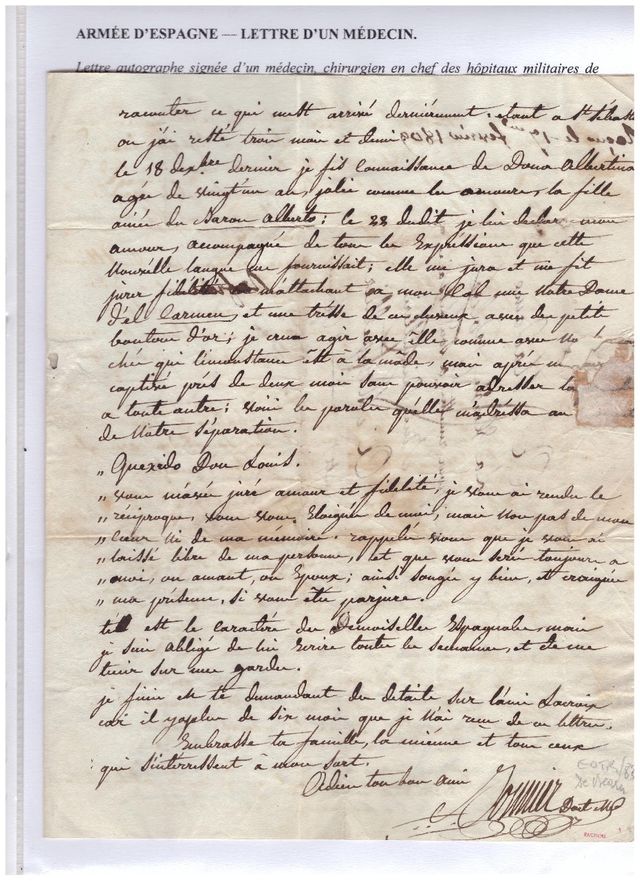 ARMÉE D'ESPAGNE — LETTRE D'UN MÉDECIN.
Lettre autographe signée d'un médecin, chirurgien en chef des hôpitaux militaires de
raconter ce qui m'est arrivé dernièrement; étant a St Sébast
ou j'ai resté trois mois et demi
le 18 Xbre dernier je fis connaissance de Dona Albertina
agée de vingt'un an, jolie comme les amours, la fille
ainée du Baron Alberto; le 28 dudit je lui declar mon
amour, accompagnée de tous les Expressions que cette
Nouvelle langue me fournissait; elle me jura et me fit
jurer fidélité m'attachant a mon Col une Notre Dame
d'el Carmen, et une trésse de ces cheveux avec des petits
boutons d'or; je crus agir avec elle comme avec No
chér que l'inconstance est à la mode, mais après m
captivé près de deux mois sans pouvoir adresser
a toute autre; voici les paroles qu'elle m'adréssa au
de Notre séparation.
" Querido Don Louis.
" vous m'avez juré amour et fidelité, je vous ai rendu le
" réciproque, vous vous Eloignée de moi, mais Non pas de mon
" Cœur Ni de ma mémoire. rappelé vous que je vous ai
" laissé libre de ma personne, et que vous seré toujours a
" moi, ou amant, ou Epoux; ainsi songée y bien, et craignée
" ma présence, si vous être parjure.
tel est le caractère des Demoiselles Espagnoles, mais
je suis obligé de lui Ecrire toutes les semaines, et de me
tenir sur mes gardes.
je finis en te demandant des details sur l'ami Lacroix
car il y a plus de six mois que je N'ai reçu de ces lettres.
Embrasse ta famille, la mienne et tous ceux
qui s'intérréssent a mon sort.
Adieu ton bon ami